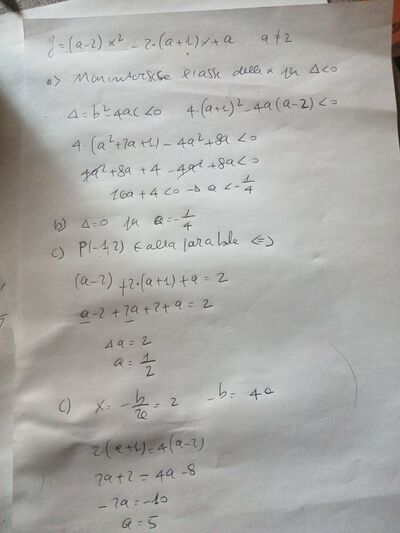 y = (a-2) x² - 2·(a+1)x + a a ≠ 2
a) Non interseca l'asse delle x per Δ<0
Δ = b² - 4ac < 0 4·(a+1)² - 4a(a-2) < 0
4·(a²+2a+1) - 4a² + 8a < 0
4a² + 8a + 4 - 4a² + 8a < 0
16a + 4 < 0 → a < -1/4
b) Δ = 0 per a = -1/4
c) P(-1,2) ∈ alla parabola ⇔
(a-2) + 2·(a+1) + a = 2
a - 2 + 2a + 2 + a = 2
4a = 2
a = 1/2
c) x = -b/2a = 2 -b = 4a
2·(a+1) = 4(a-2)
2a + 2 = 4a - 8
-2a = -10
a = 5